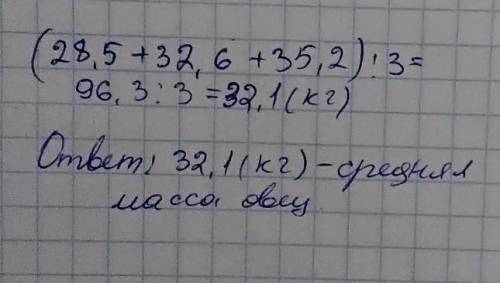 (28,5 + 32,6 + 35,2) : 3 =
96,3 : 3 = 32,1 (кг)
Ответ: 32,1 (кг) - средняя
масса овец